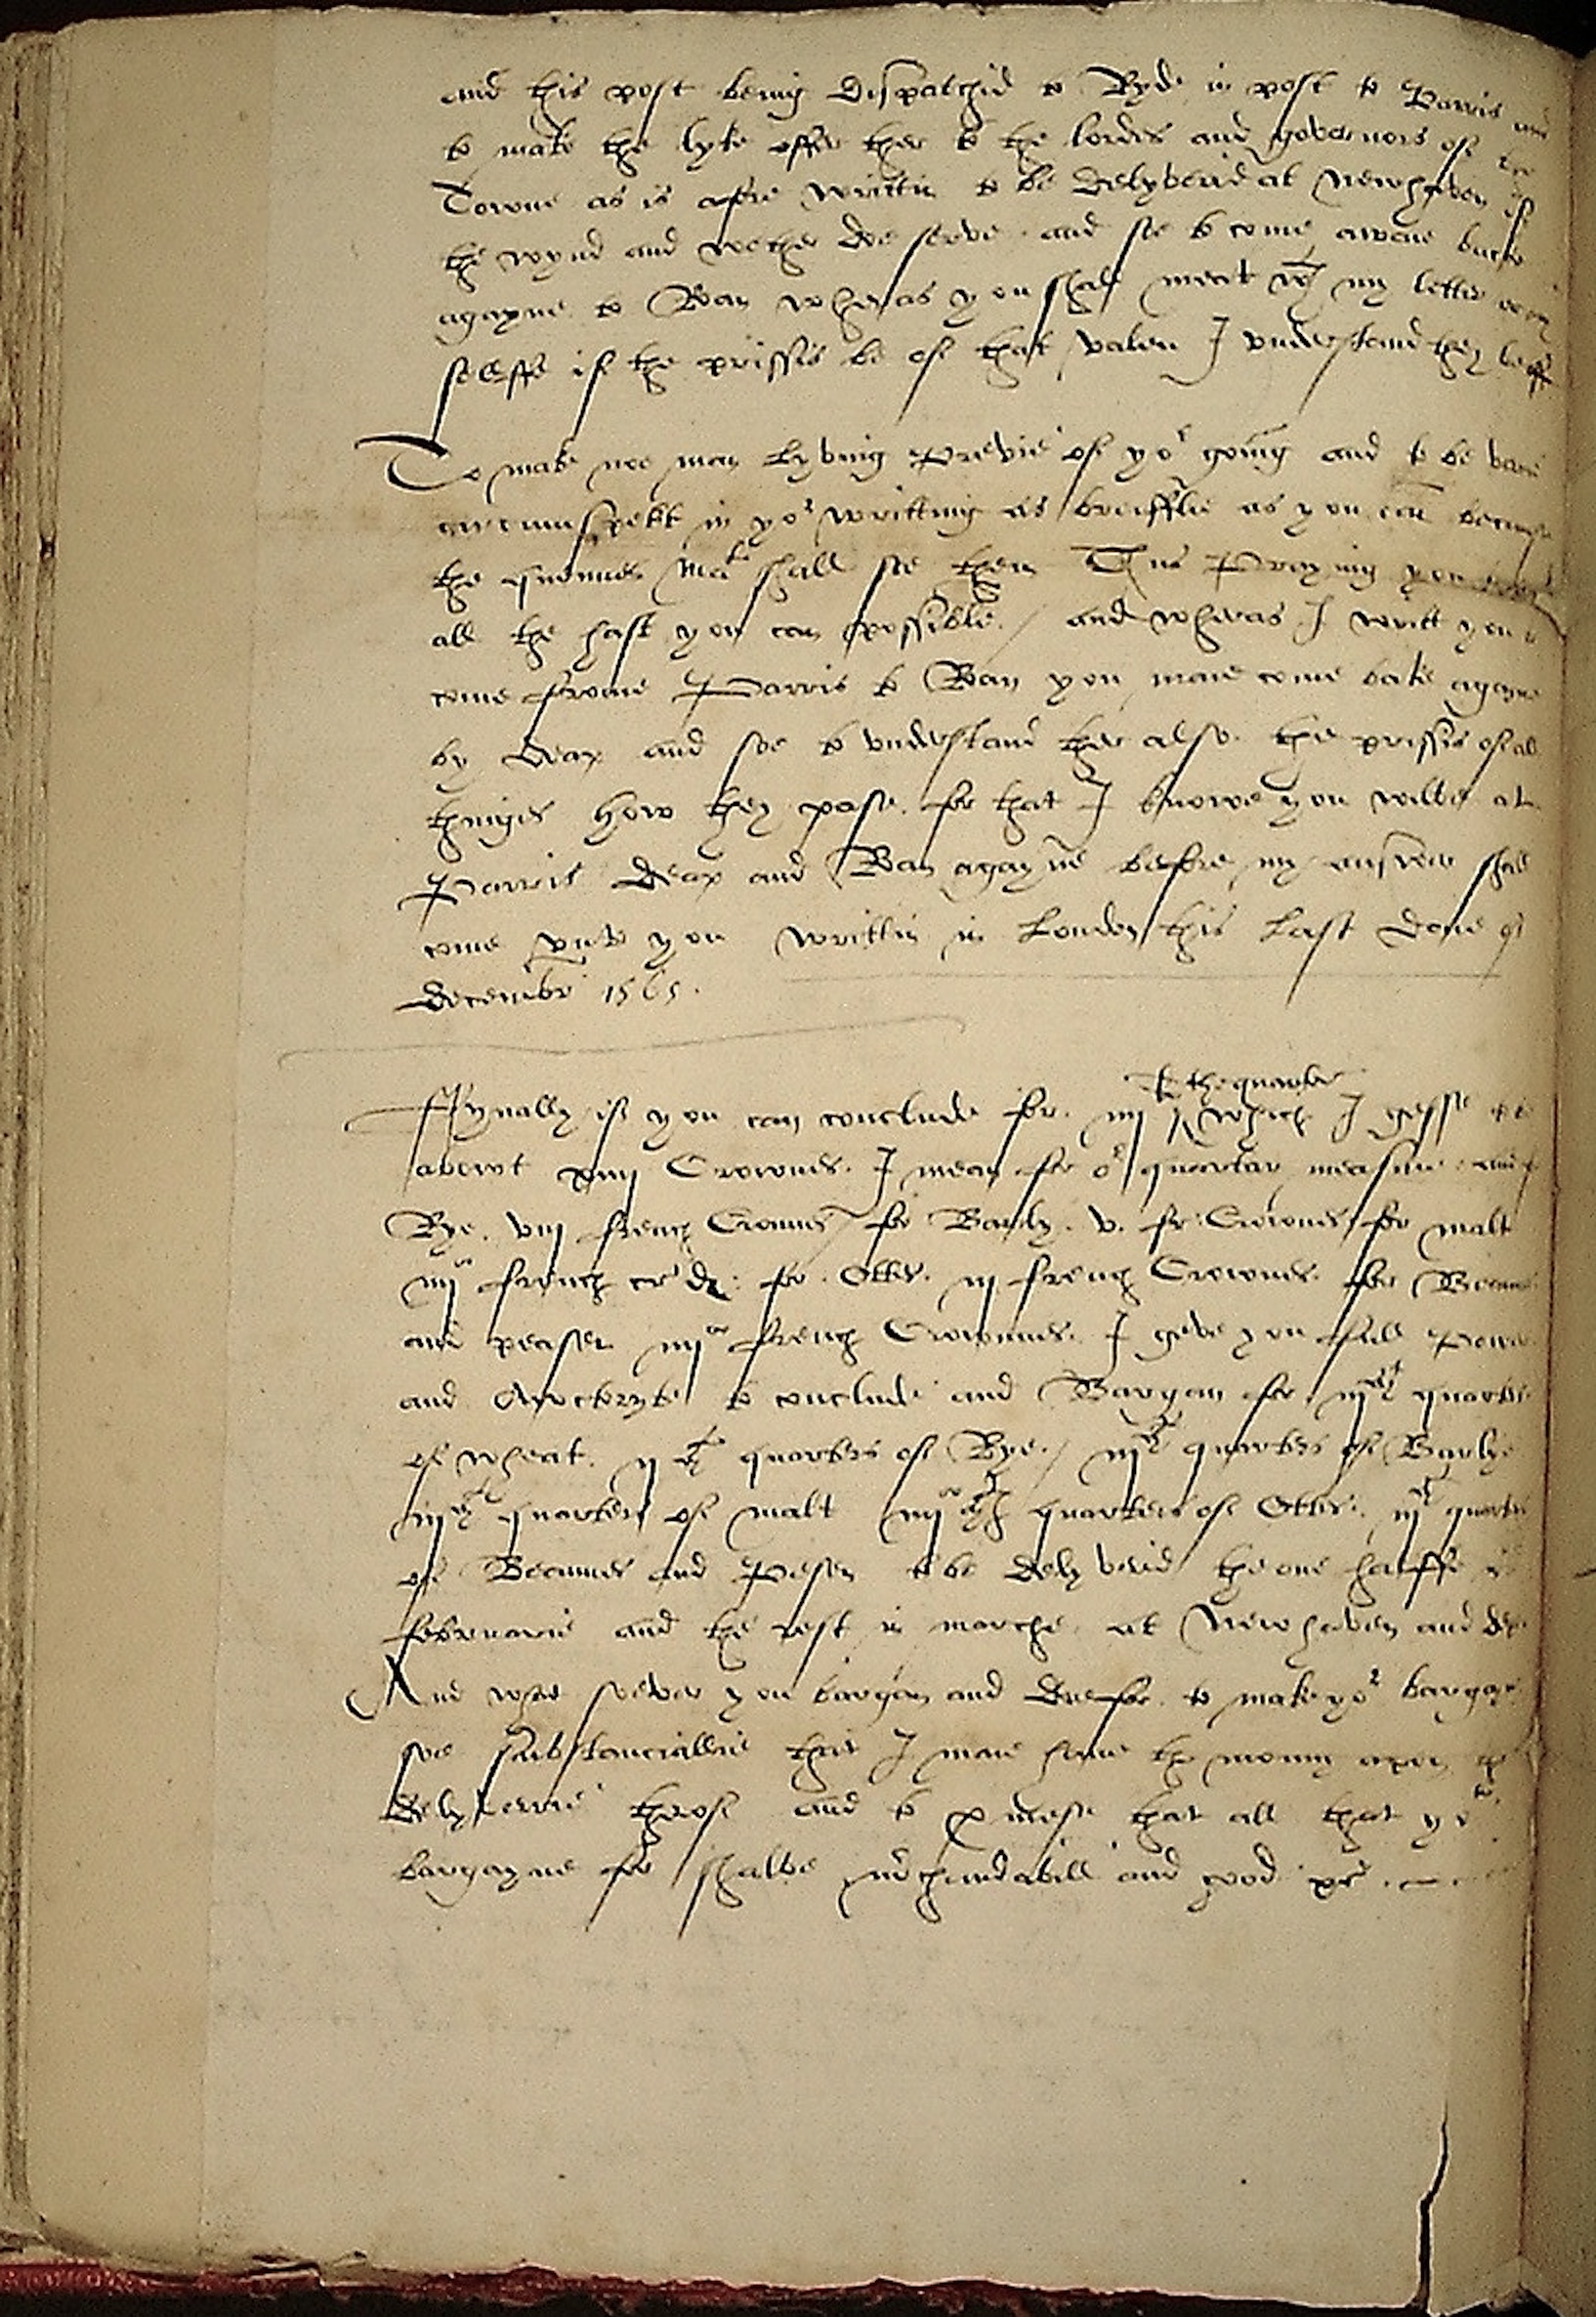 and this post being dispatchid to Ryde in post to Parris and
to make the lyke offer ther to the lordes and governors of the
Towne as is afore writtin to be delyverid at Newhaven if
the wynd and wether doe serve and soe to come awaie backe
agayne to Roan wheras you shall meat wth my letter or my
sellffe if the prissis be of that valew I understand they be off
To make noe man lyving Previe of yor going and to be verie
circumspekt in yor writting as breifflie as you can because
the quennes Matie shall see them Thus Praying you
all the hast you can possible / and wheras I writt you to
come frome Parris to Roan you maie come bake agayne
by deap and soe to understand ther also the prissis of all
thinges how they passe for that I knowe you wilbe at
Parris deap and Roan agayne before my answer shall
come unto you writtin in London this last daie of
december 1565.
Fynally if you can conclude for iiij li the quarter which I gesse to be
abowt xiiij Crownes I mean for or quartar measure and for
Rye viij french Crownes for Barly v fr Crownes for malt
iiijor french cr di for Ottes iij french Crownes for Beanes
and peasen iiijor french Crownnes I geve you full Power
and Awctoryte to conclude and Bargan for quarters
of wheat quarters of Rye / quarters of Barlye
quarters of malt quarters of Ottes quarters
of Beannes and Pesen to be delyverid the one halffe in
februarie and the rest in marche at Newhaven and deap
And what soever you bargan and doe for to make yor bargayne
soe substanciallie that I maie have the monny apon the
delyverie therof and to promese that all that you
bargayne for shalbe merchandabill and good